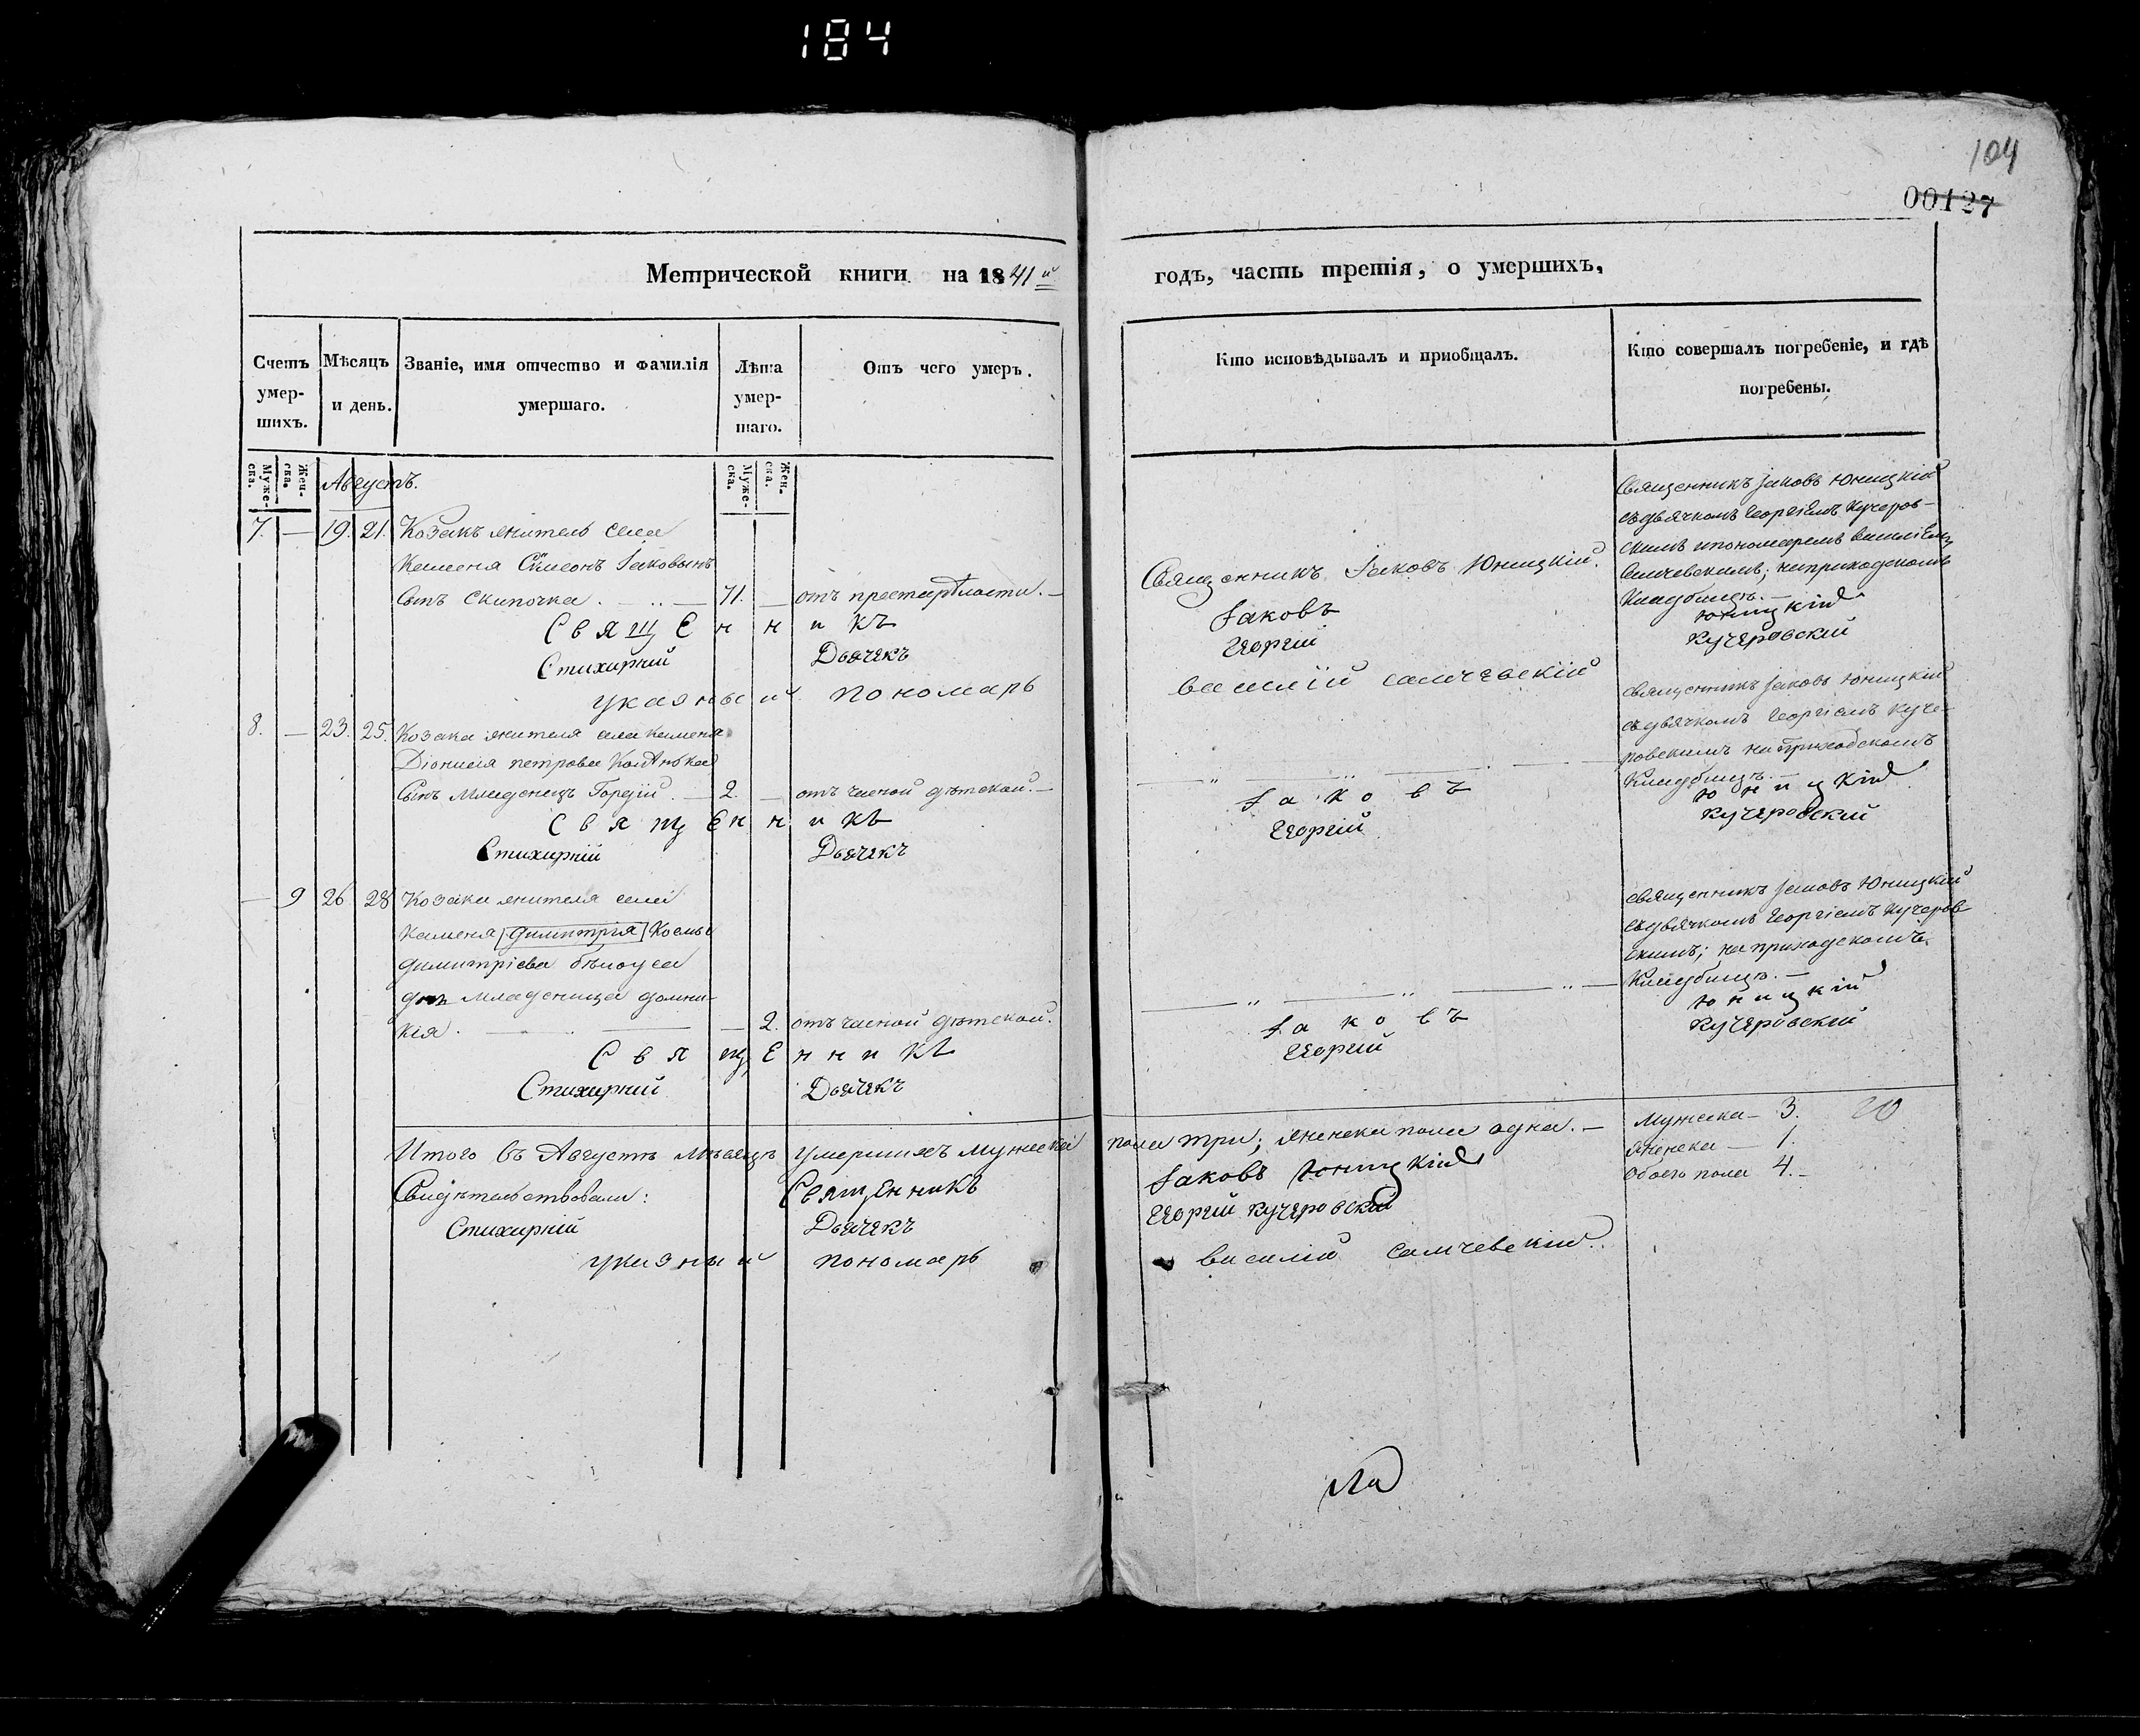 184
104
00127
Метрической книги на 1841й годъ, часть третія, о умершихъ.
Счетъ умер-шихъ.
Мѣсяцъ и день.
Званіе, имя отчество и фамилія умершаго.
Лѣта умер-шаго.
Отъ чего умеръ.
Кто исповѣдывалъ и пріобщалъ.
Кто совершалъ погребеніе, и гдѣ погребены.
Муже-ска.
Жен-ска.
Муже-ска.
Жен-ска.
Августъ.
7. — 19. 21. Козакъ житель села
Каменя Симеонъ Іаковынъ
сынъ Скипочка . — 71. — отъ престарѣлости. —
Священникъ Іаковъ Юницкій.
Священникъ Іаковъ Юницкій
съ дьячкомъ Георгіемъ Кучеров-
скимъ и пономаремъ Василіемъ
Самчевскимъ; на приходскомъ
Кладбищѣ. —
Священникъ Іаковъ Юницкій
Стихирный Дьячекъ Георгій Кучеровскій
указный пономарь василій самчевскій
8. — 23. 25. Козака жителя села Каменя
Діонисія петрова
Сынъ Младенецъ Гордій . — 2. — отъ чесной дѣтской. —
священникъ Іаковъ Юницкій
съ дьячкомъ Георгіемъ Куче-
ровскимъ на Приходскомъ
Кладбищѣ. —
Священникъ Іаковъ Юницкій
Стихирный Дьячекъ Георгій Кучеровскій
— 9 26 28 Козака жителя села
Каменя [Димитрія] Космы
димитріева бѣлоуса
дочь младеница домни-
кія. — 2. отъ чесной дѣтской.
священникъ Іаковъ Юницкій
съ дьячкомъ Георгіемъ Кучеров-
скимъ; на приходскомъ
Кладбищѣ. —
Священникъ Іаковъ Юницкій
Стихирный Дьячекъ Георгій Кучеровскій
Итого въ Августѣ мѣсяцѣ умершихъ мужеска пола три; женска пола одна. —
Мужеска — 3. 20
женска — 1.
Обоего пола 4. —
Свидѣтельствовали: Священникъ Іаковъ Юницкій
Стихирный Дьячекъ Георгій Кучеровскій
указный пономарь василій самчевскій.